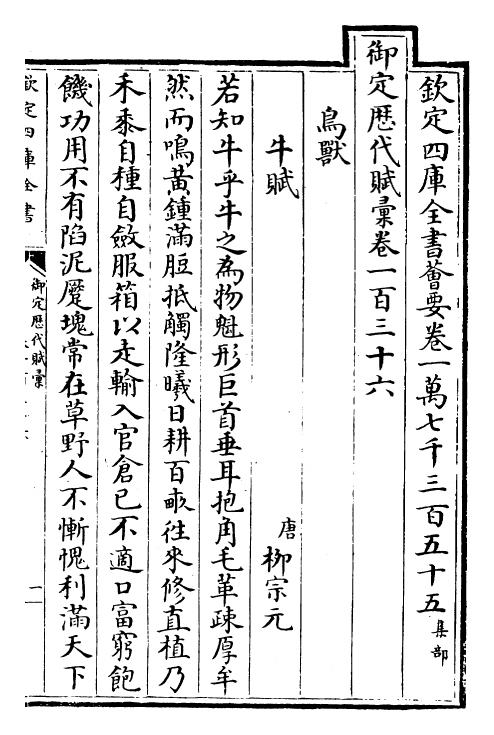 欽定四庫全書薈要卷一萬七千三百五十五 集部
御定歷代賦彚卷一百三十六
鳥獸
牛賦
唐 柳宗元
若知牛乎牛之為物魁形巨首垂耳抱角毛革疎厚牟
然而鳴黃鍾滿脰抵觸隆曦日耕百畝往來修直植乃
禾黍自種自斂服箱以走輸入官倉已不適口富窮飽
饑功用不有陷泥蹷塊常在草野人不慚愧利滿天下
欽定四庫全書
御定歷代賦彚
一